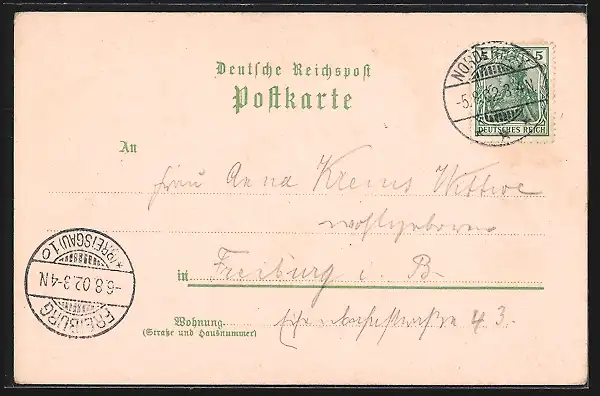 Deutsche Reichspost
Postkarte
5
NORDERNEY
-5.8.02.3-4N
DEUTSCHES REICH
An
Frau Anna Krems Wittwe
wohlgeboren
in Freiburg i. B.
*(BREISGAU)1 o
-6.8.02.3-4N
FREIBURG
Wohnung 43.
(Straße und Hausnummer)